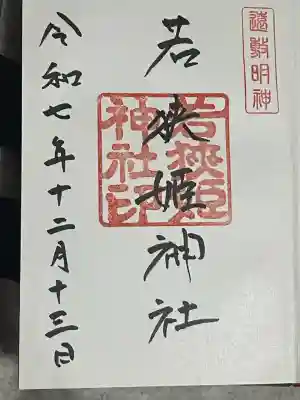 遠敷明神
若狭姫神社
若狭姫
神社印
令和七年十二月十三日